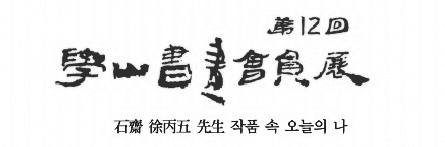 第12回
學山書畫會員展
石齋 徐丙五 先生 작품 속 오늘의 나